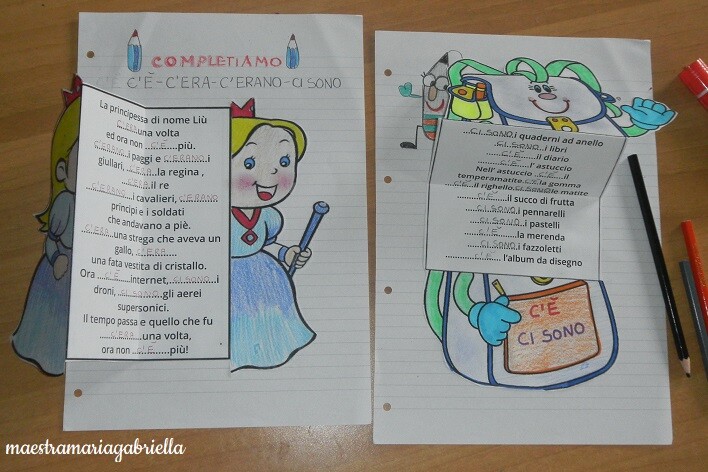 COMPLETIAMO
C'È C'È-C'ERA-C'ERANO-CI SONO
La principessa di nome Liù
C'ERA una volta
ed ora non C'È più.
C'ERANO i paggi e C'ERANO i
giullari, C'ERA la regina ,
C'ERA il re
C'ERANO i cavalieri, C'ERANO
principi e i soldati
che andavano a piè.
C'ERA una strega che aveva un
gallo, C'ERA
una fata vestita di cristallo.
Ora C'È internet, CI SONO i
droni, CI SONO gli aerei
supersonici.
Il tempo passa e quello che fu
C'ERA una volta,
ora non C'È più!
CI SONO i quaderni ad anello
CI SONO i libri
C'È il diario
C'È l' astuccio
Nell' astuccio C'È il
temperamatite C'È la gomma
C'È il righello CI SONO le matite
C'È il succo di frutta
CI SONO i pennarelli
CI SONO i pastelli
C'È la merenda
CI SONO i fazzoletti
C'È l'album da disegno
C'È
CI SONO
maestramariagabriella